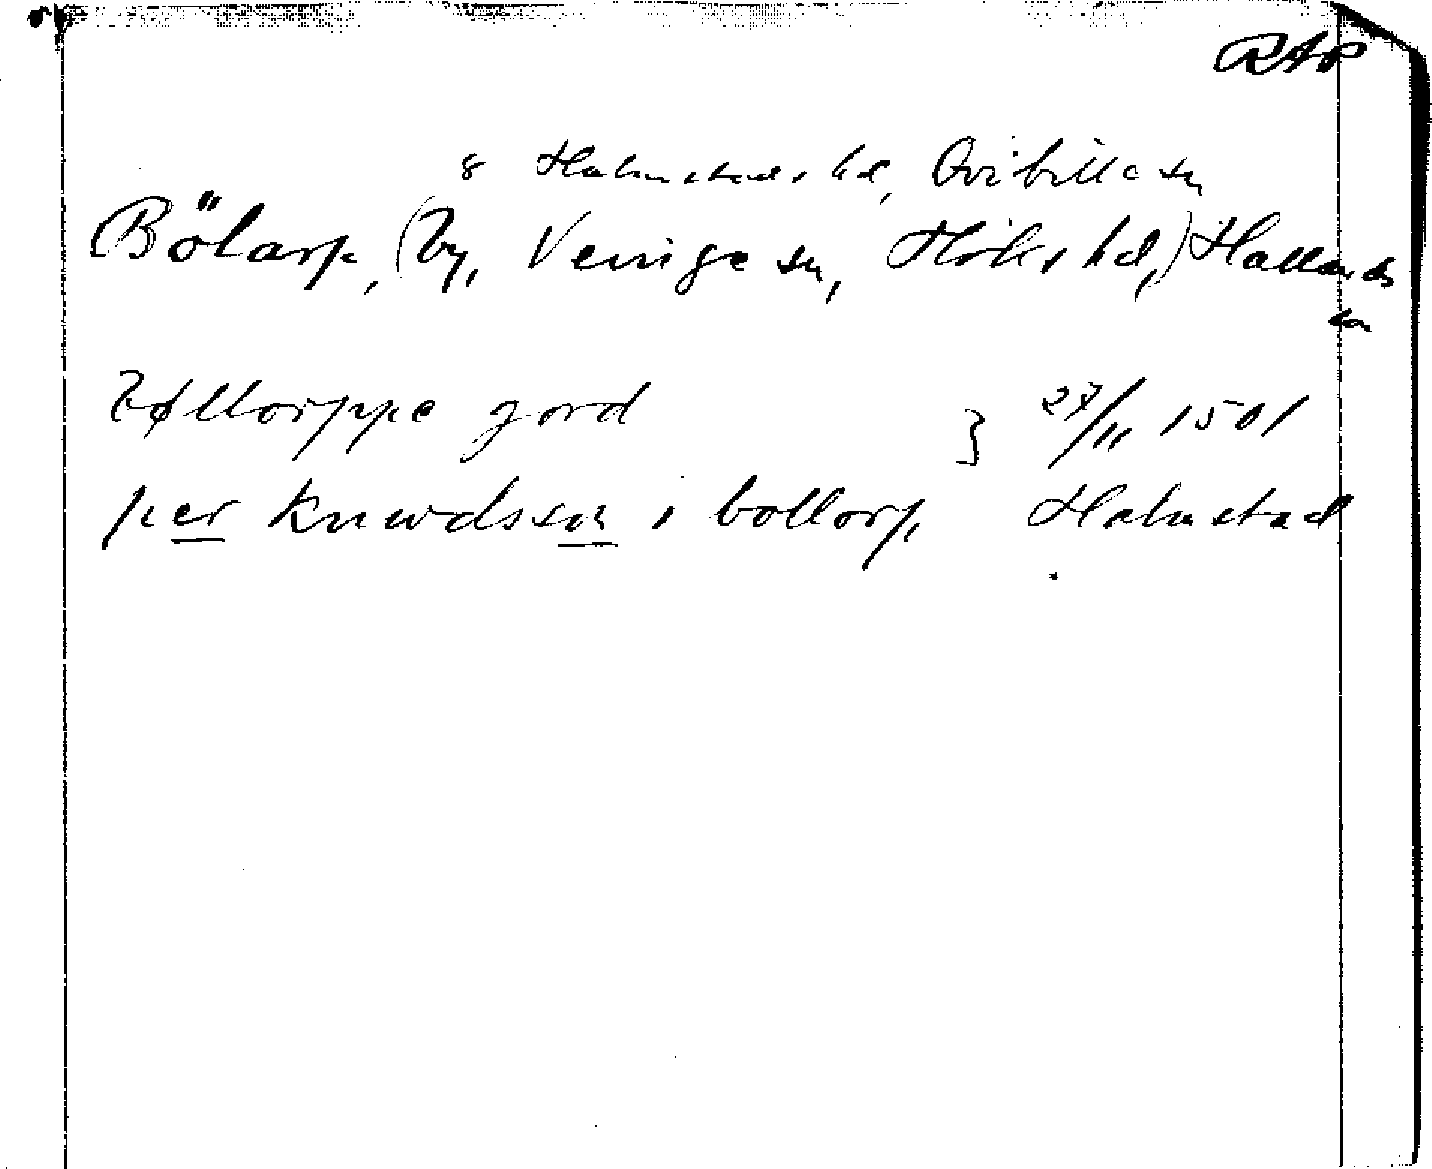 RAP
8 Halmstads hd, Kvibille sn
Bölarp, (by, Veinge sn, Höks hd,) Hallands
län
bøllorppe gord } 27/11 1501
per knwdsson i bollorp Halmstad